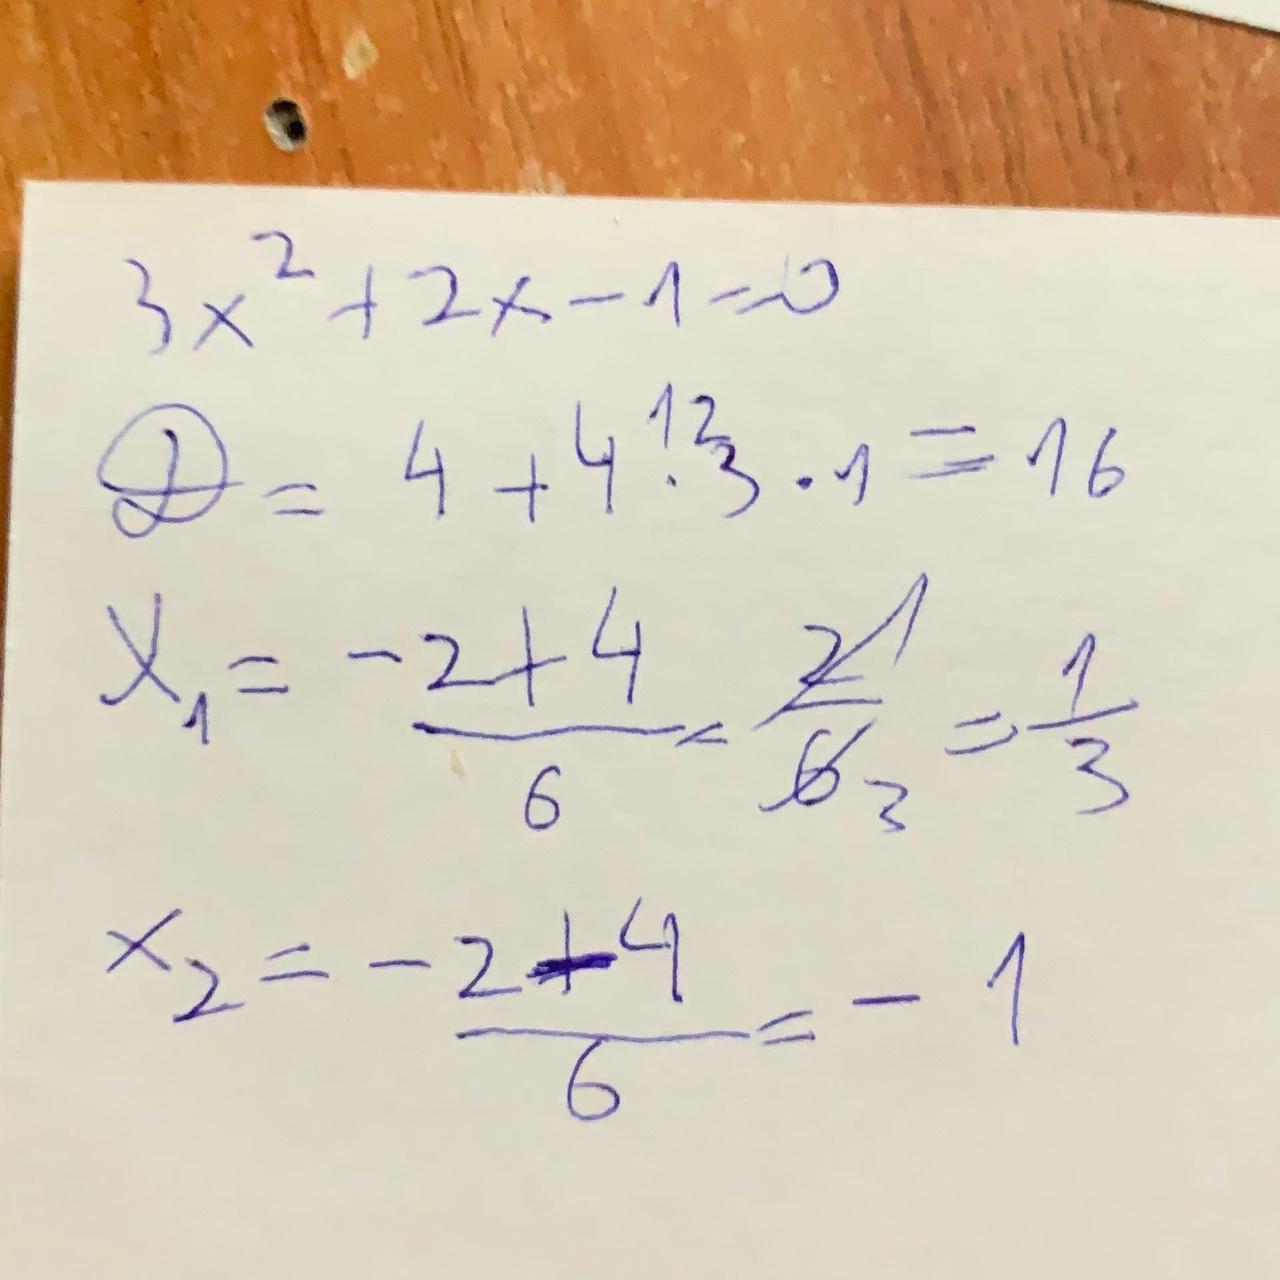 3x² + 2x - 1 = 0
D = 4 + 4 · 3 · 1 = 16
12
X₁ = (-2 + 4)/6 = 2/6 = 1/3
1
3
x₂ = (-2 - 4)/6 = - 1